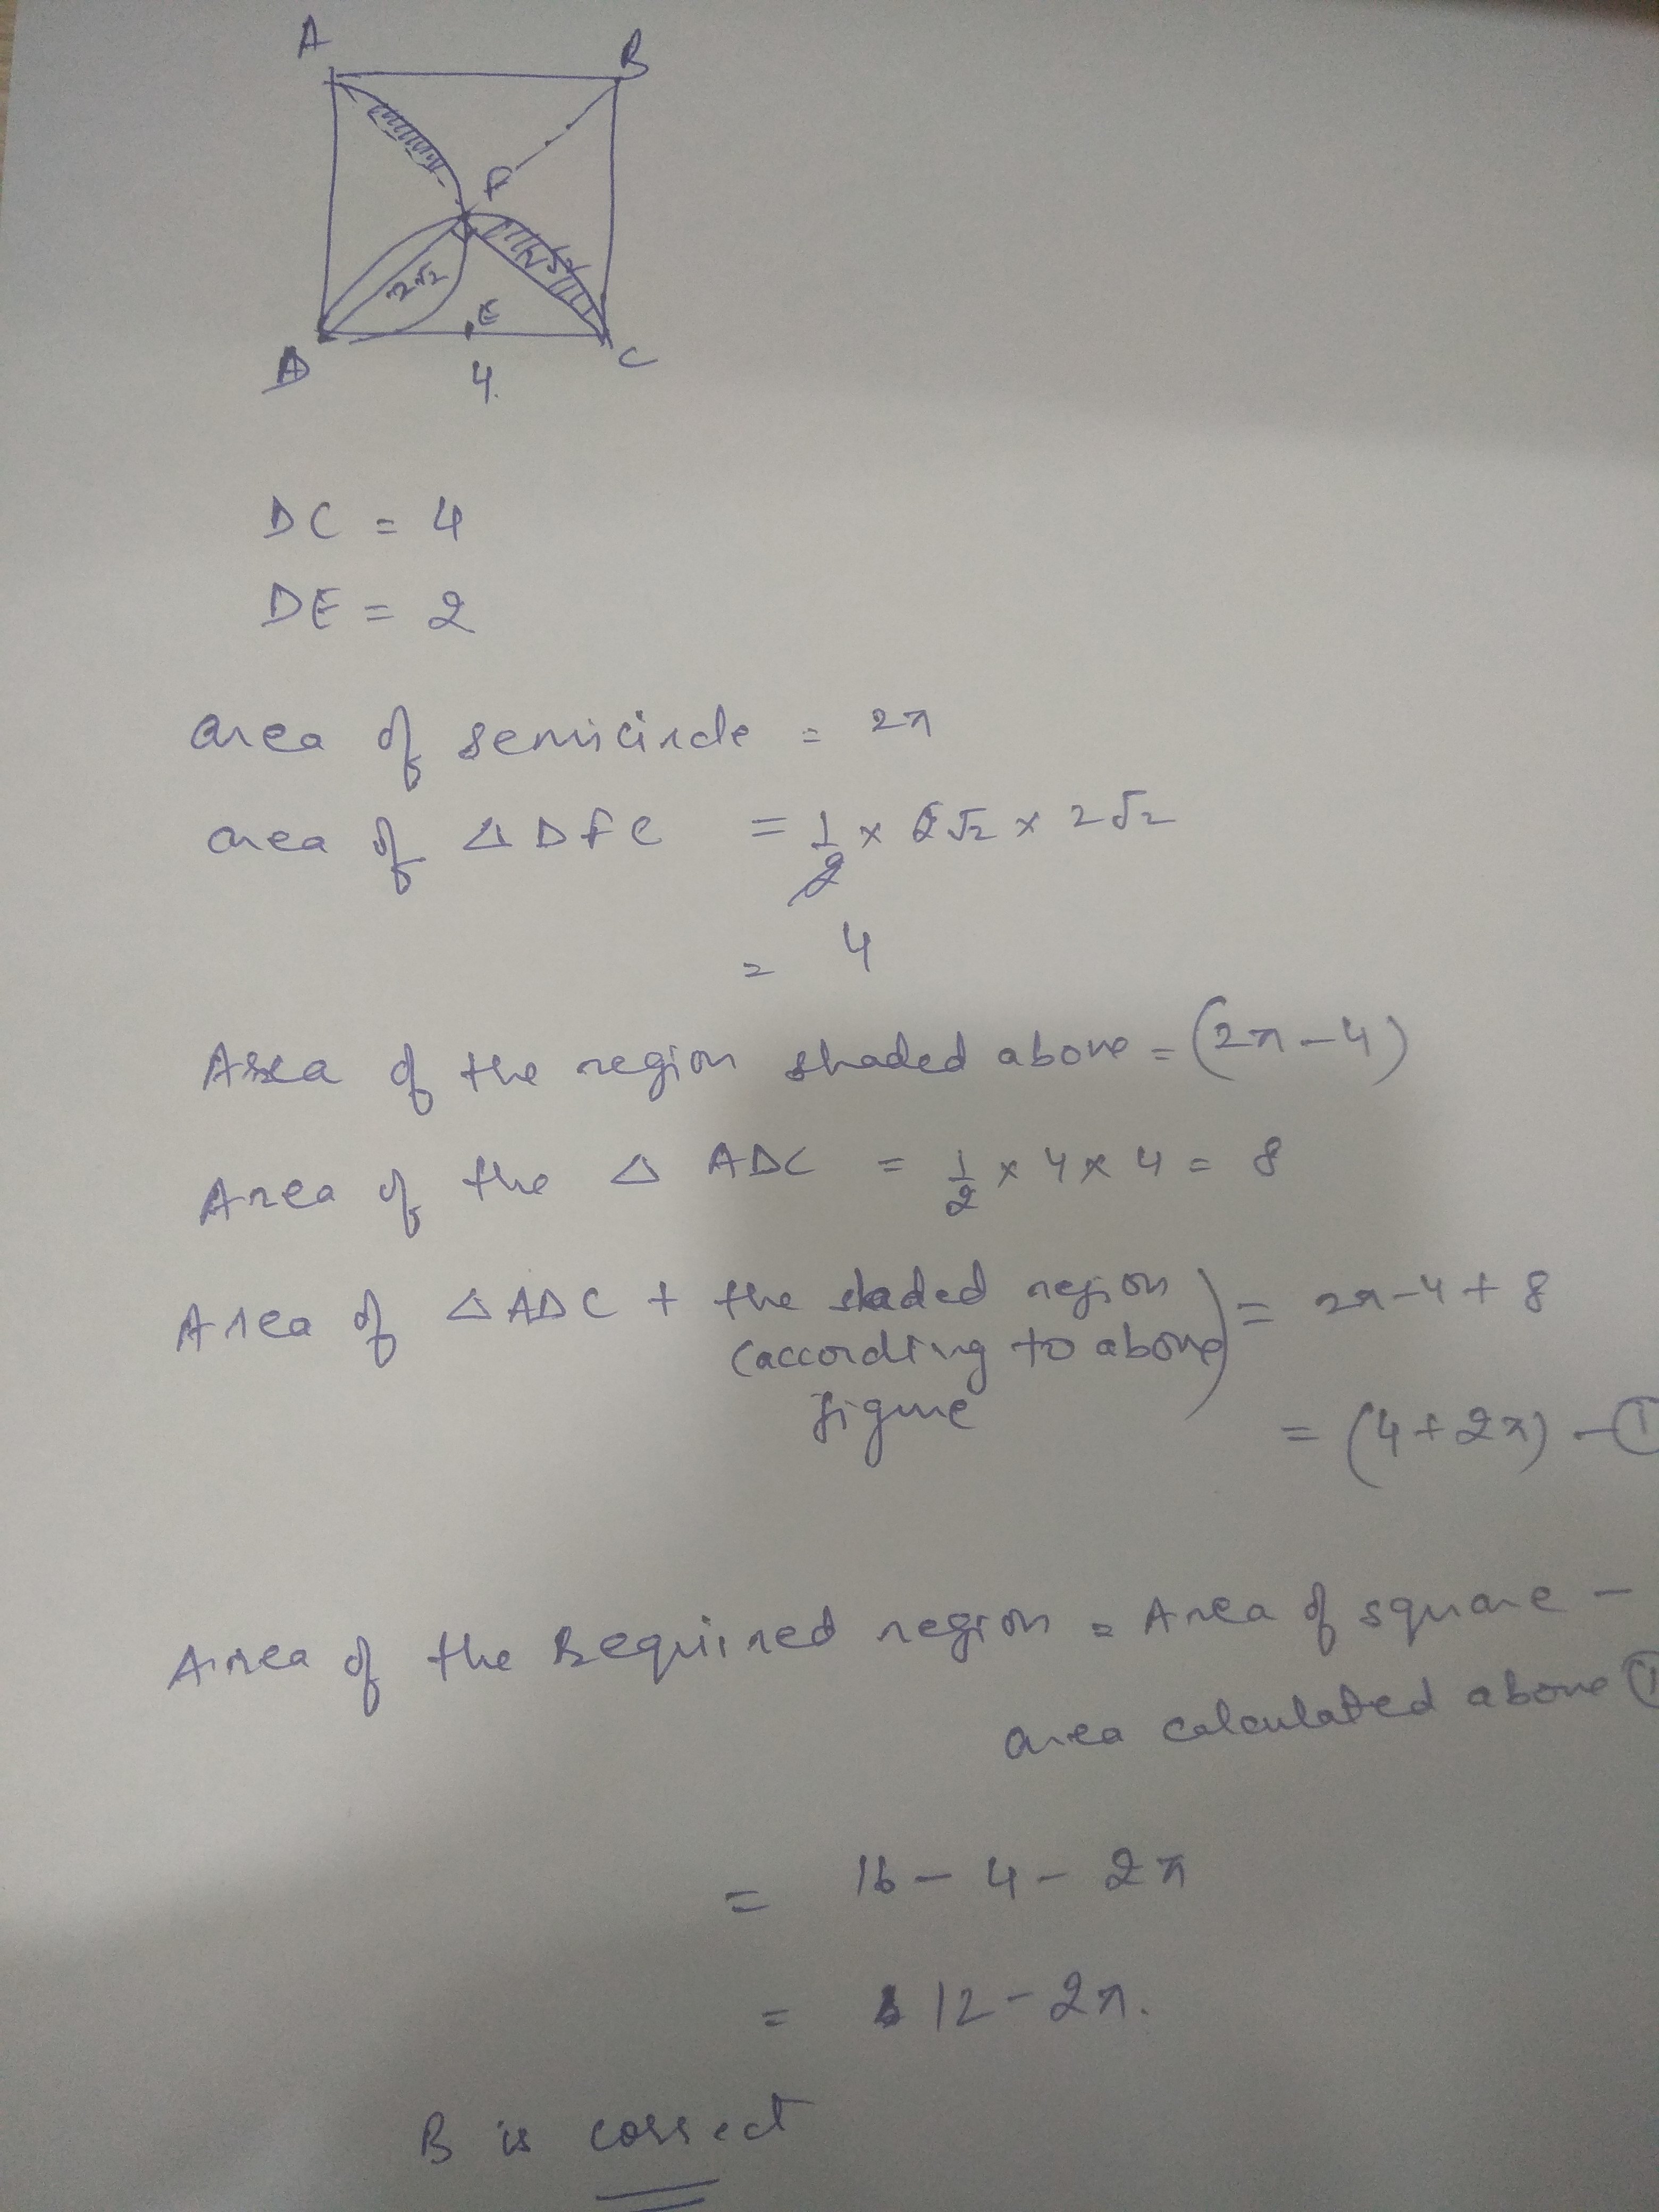 A
B
F
2√2
2√2
E
D
C
4.
DC = 4
DE = 2
area of semicircle = 2π
area of △ DFC = 1/2 × 2√2 × 2√2
= 4
Area of the region shaded above = (2π - 4)
Area of the △ ADC = 1/2 × 4 × 4 = 8
Area of △ ADC + the shaded region ) = 2π - 4 + 8
(according to above
figure
= (4 + 2π) - ①
Area of the Required region = Area of square -
area calculated above ①
= 16 - 4 - 2π
= 12 - 2π.
B is correct